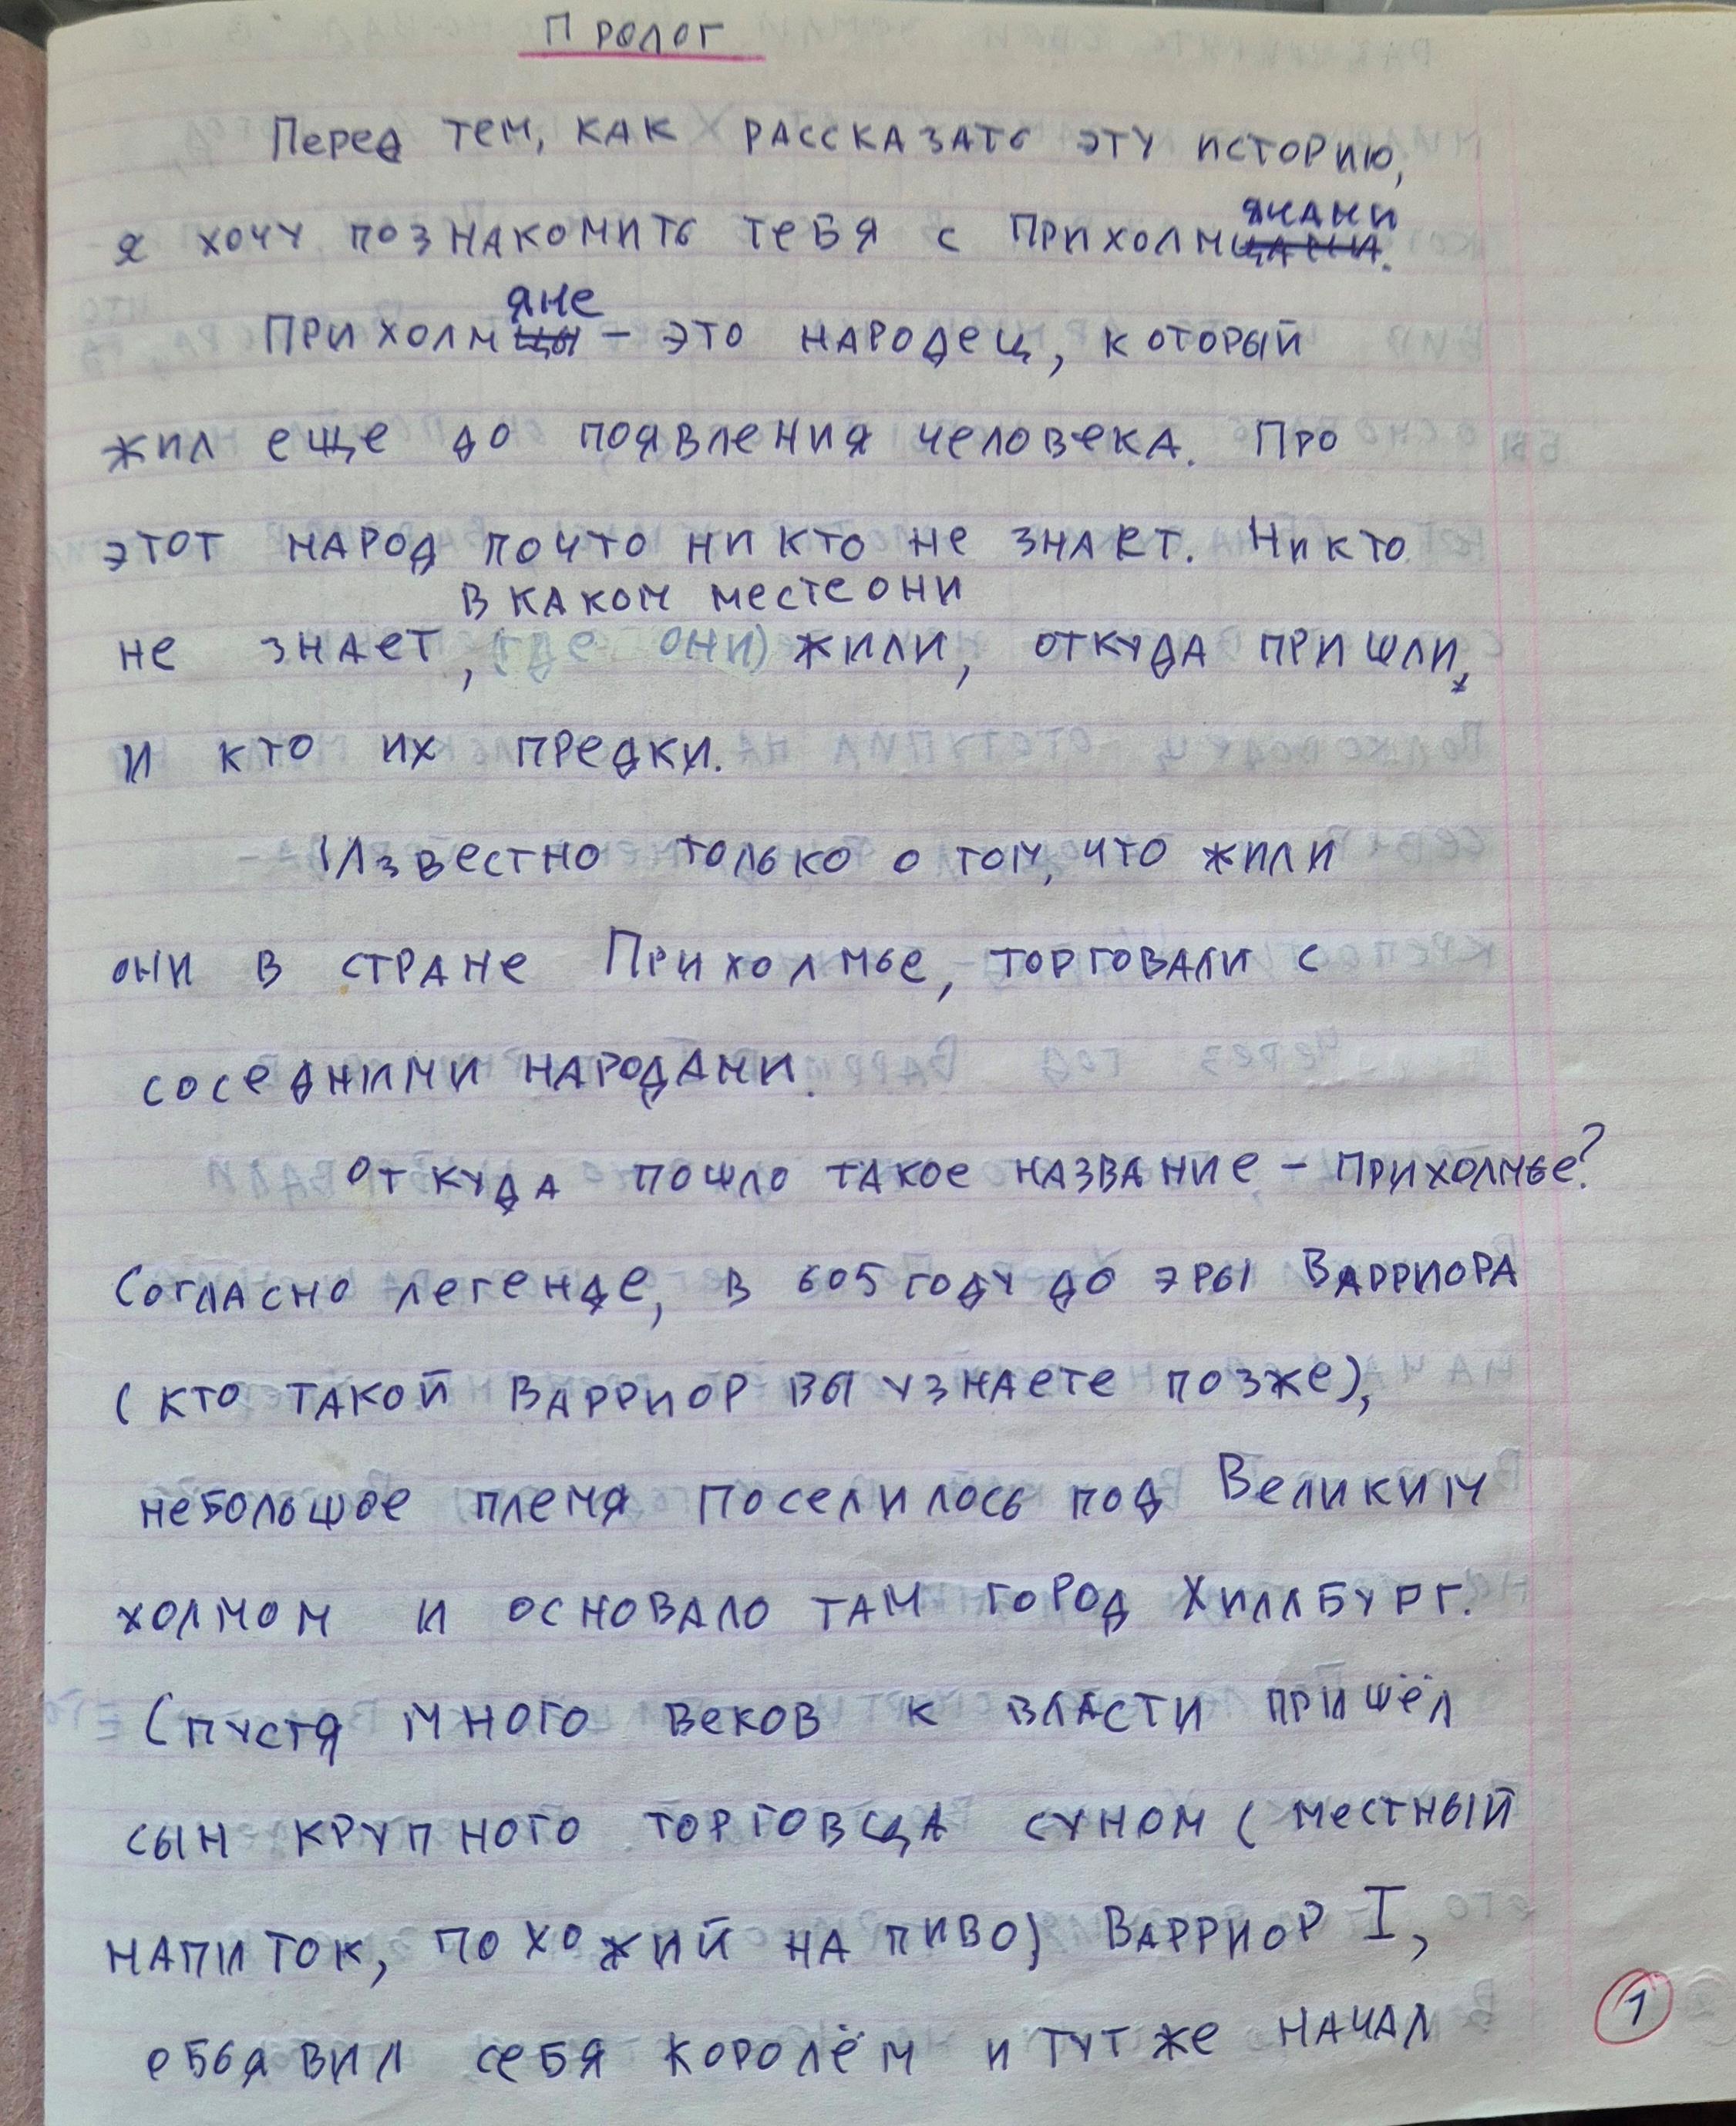 Пролог
Перед тем, как рассказать эту историю,
ячами
я хочу познакомить тебя с прихолмцами.
яне
Прихолмцы – это народец, который
жил еще до появления человека. Про
этот народ почто никто не знает. Никто
в каком месте они
не знает, (где они) жили, откуда пришли,
и кто их предки.
Известно только о том, что жили
они в стране Прихолмье, торговали с
соседними народами.
Откуда пошло такое название – Прихолмье?
Согласно легенде, в 605 году до эры Варриора
(кто такой Варриор вы узнаете позже),
небольшое племя поселилось под Великим
холмом и основало там город Хиллбург.
Спустя много веков к власти пришёл
сын крупного торговца суном (местный
напиток, похожий на пиво) Варриор I,
обьявил себя королём и тут же начал
1